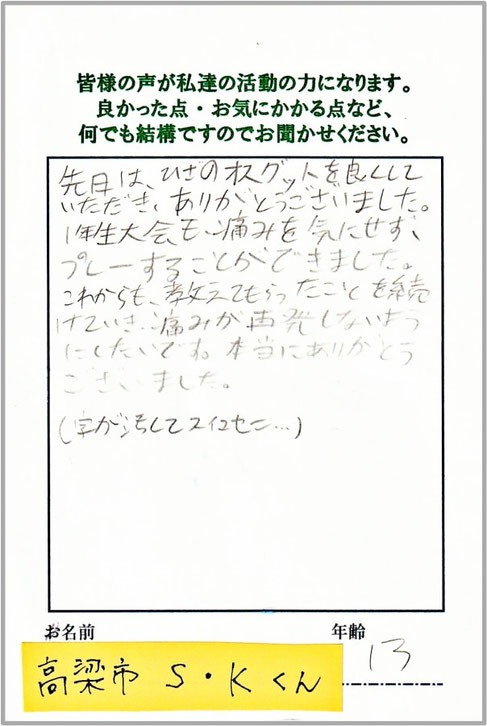 皆様の声が私達の活動の力になります。
良かった点・お気にかかる点など、
何でも結構ですのでお聞かせください。
先日は、ひざのオスグットを良くして
いただき、ありがとうございました。
1年生大会も、痛みを気にせず、
プレーすることができました。
これからも、教えてもらったことを続
けていき、痛みが再発しないよう
にしたいです。本当にありがとう
ございました。
(字が汚くてスイマセン…)
お名前 年齢
高梁市 S・Kくん 13